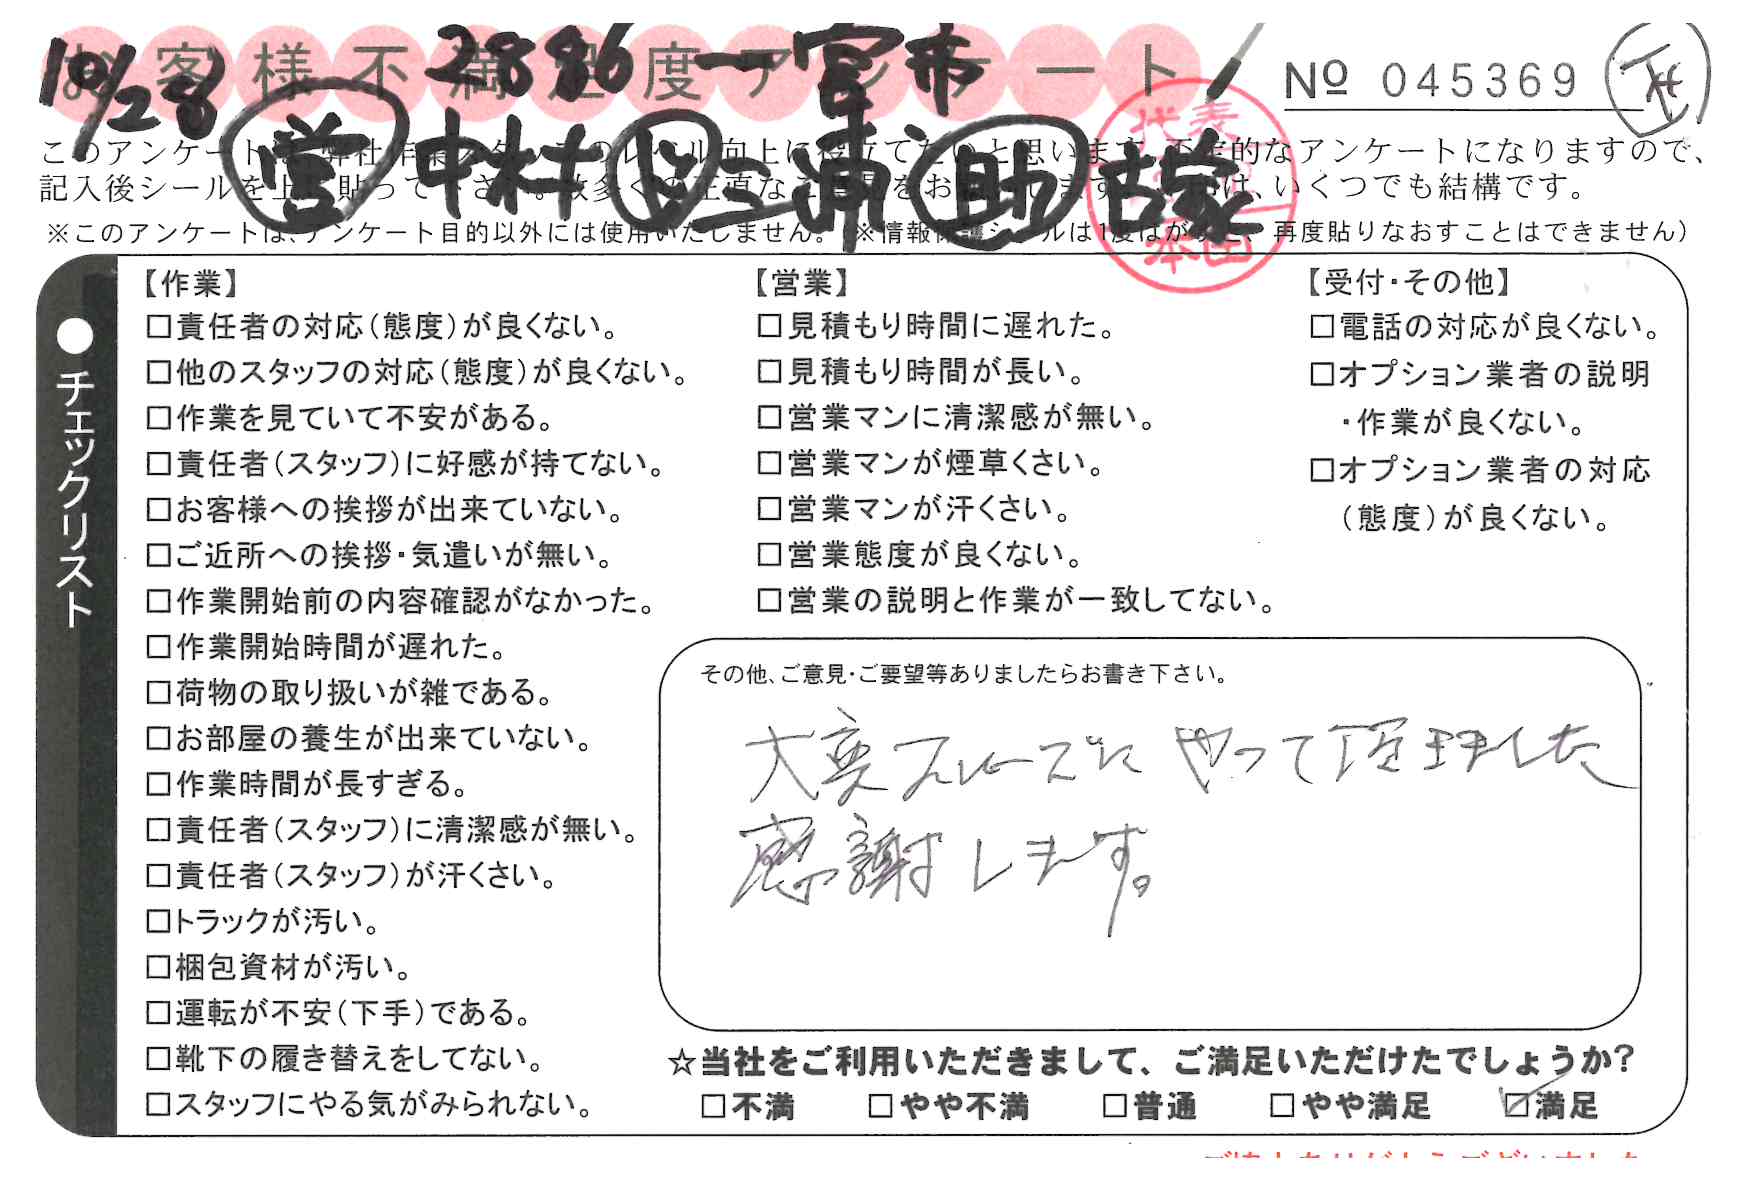 お客様不満足度アンケート
10/28 2896 一宮市
No 045369
営 中村 三浦 助 古家
このアンケートは、弊社作業スタッフのレベル向上に役立てたいと思います。否定的なアンケートになりますので、
記入後シールを上に貼って下さい。数多くの正直なご意見をお願いします。 は、いくつでも結構です。
※このアンケートは、アンケート目的以外には使用いたしません。(※情報保護シールは1度はがすと、再度貼りなおすことはできません)
代表
本田
●チェックリスト
【作業】
□責任者の対応(態度)が良くない。
□他のスタッフの対応(態度)が良くない。
□作業を見ていて不安がある。
□責任者(スタッフ)に好感が持てない。
□お客様への挨拶が出来ていない。
□ご近所への挨拶・気遣いが無い。
□作業開始前の内容確認がなかった。
□作業開始時間が遅れた。
□荷物の取り扱いが雑である。
□お部屋の養生が出来ていない。
□作業時間が長すぎる。
□責任者(スタッフ)に清潔感が無い。
□責任者(スタッフ)が汗くさい。
□トラックが汚い。
□梱包資材が汚い。
□運転が不安(下手)である。
□靴下の履き替えをしてない。
□スタッフにやる気がみられない。
【営業】
□見積もり時間に遅れた。
□見積もり時間が長い。
□営業マンに清潔感が無い。
□営業マンが煙草くさい。
□営業マンが汗くさい。
□営業態度が良くない。
□営業の説明と作業が一致してない。
【受付・その他】
□電話の対応が良くない。
□オプション業者の説明
・作業が良くない。
□オプション業者の対応
(態度)が良くない。
その他、ご意見・ご要望等ありましたらお書き下さい。
大変スムーズに やって頂きました
感謝します。
☆当社をご利用いただきまして、ご満足いただけたでしょうか?
□不満 □やや不満 □普通 □やや満足 ☑満足